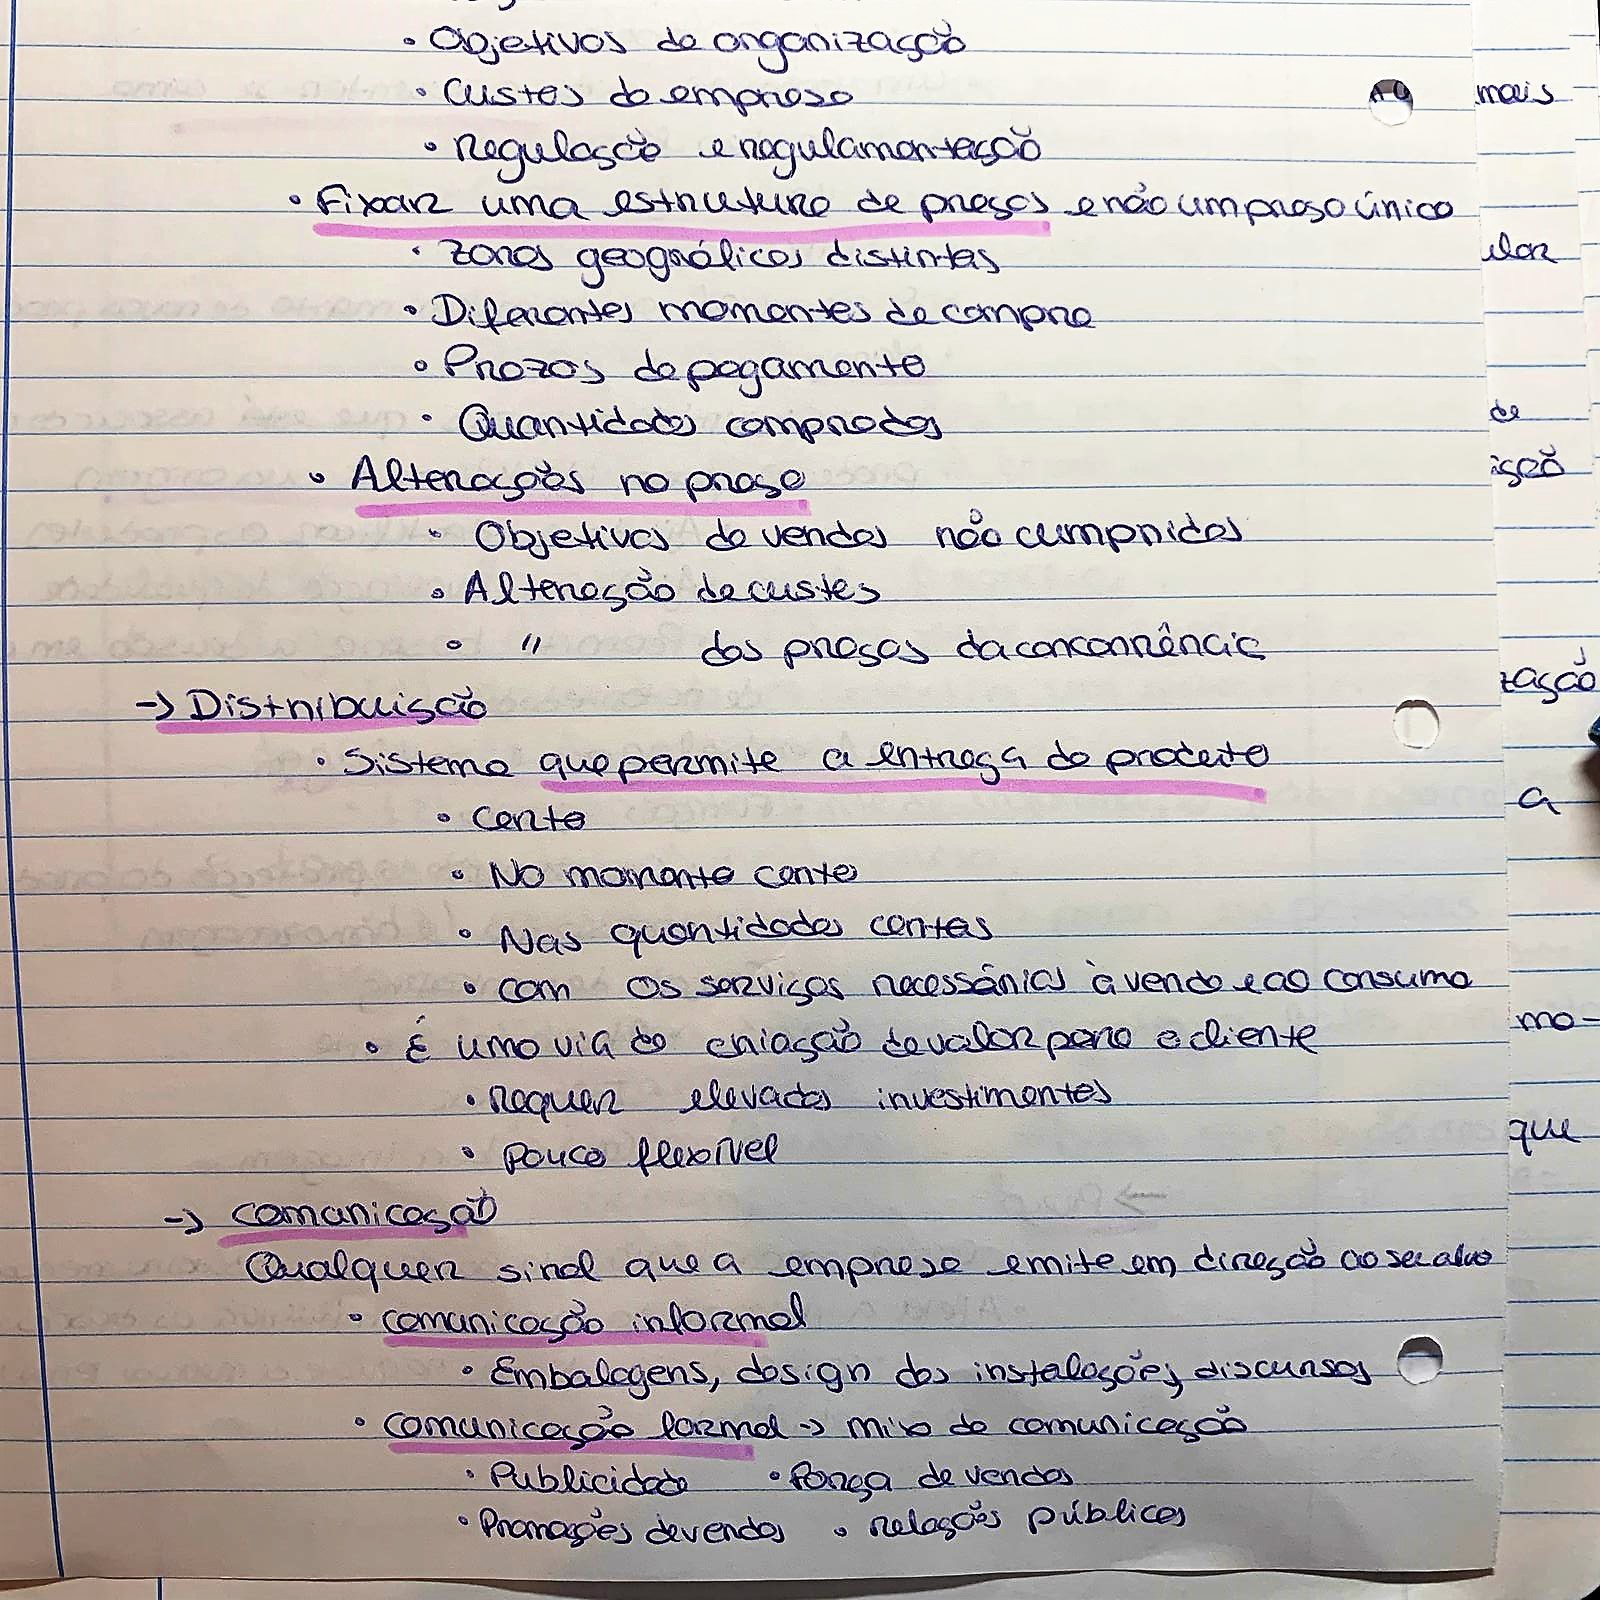 • Objetivos da organização
• Custos da empresa
• Regulação e regulamentação
• Fixar uma estrutura de preços e não um preço único
• Zonas geográficas distintas
• Diferentes momentos de compra
• Prazos de pagamento
• Quantidades compradas
• Alterações no preço
• Objetivos de vendas não cumpridos
• Alteração de custos
• " dos preços da concorrência
-> Distribuição
• Sistema que permite a entrega do produto
• Certo
• No momento certo
• Nas quantidades certas
• Com os serviços necessários à venda e ao consumo
• É uma via de criação de valor para o cliente
• Requer elevados investimentos
• Pouco flexível
-> Comunicação
Qualquer sinal que a empresa emite em direção ao seu alvo
• Comunicação informal
• Embalagens, design das instalações, discursos
• Comunicação formal -> mix de comunicação
• Publicidade • Força de vendas
• Promoções de vendas • Relações públicas
mais
de
zação
a
mo-
que